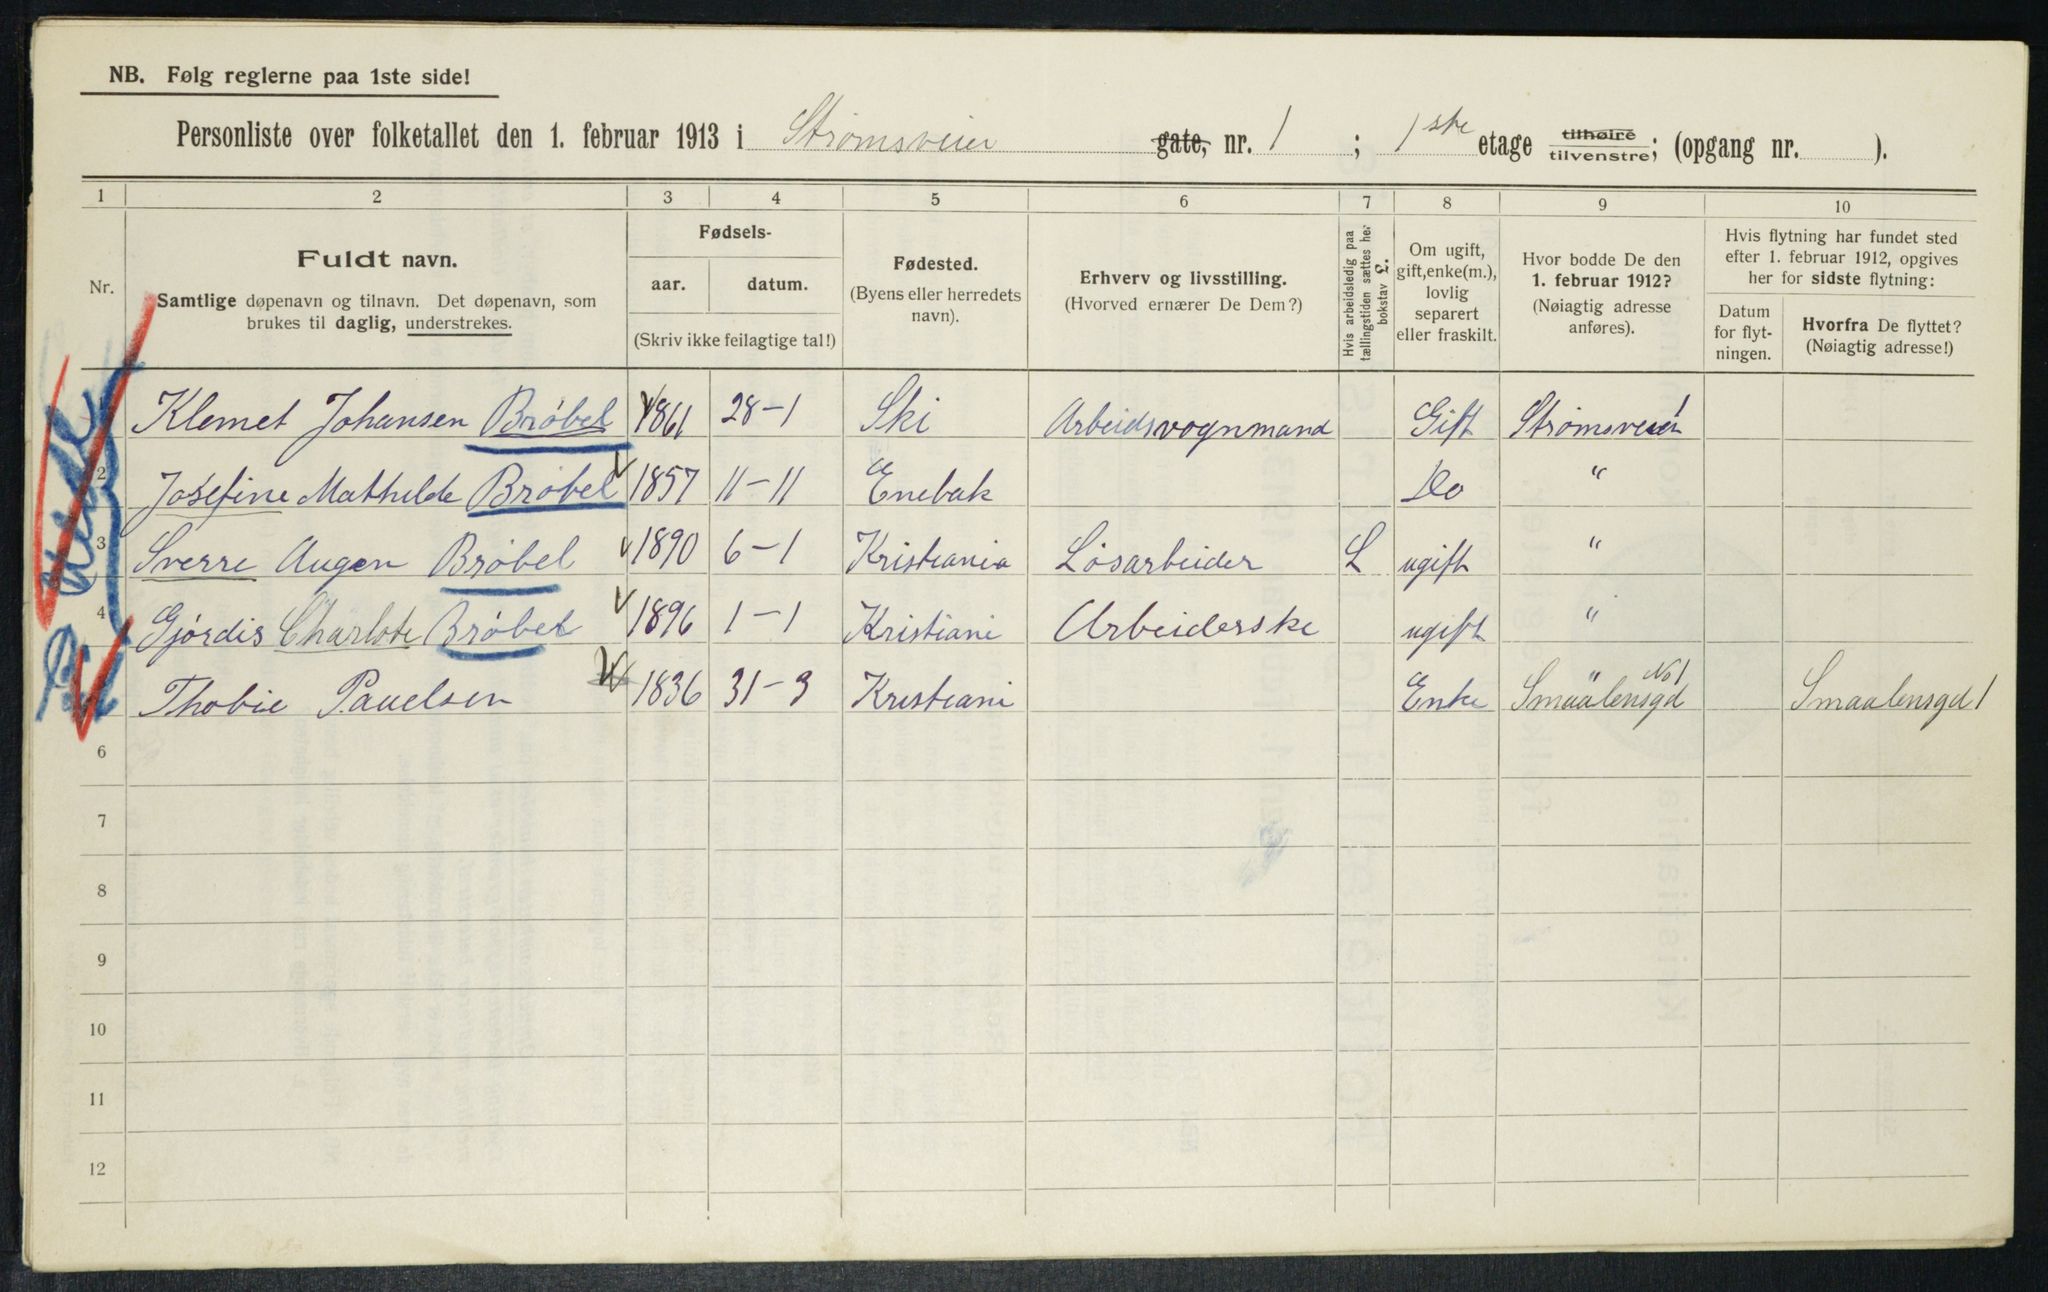 NB. Følg reglerne paa 1ste side!
Personliste over folketallet den 1. februar 1913 i Strømsveien gate, nr. 1 ; 1ste etage tilhøire tilvenstre; (opgang nr. ).
1 2 3 4 5 6 7 8 9 10
Nr.
Fuldt navn.
Samtlige døpenavn og tilnavn. Det døpenavn, som
brukes til daglig, understrekes.
Fødsels-
aar. datum.
(Skriv ikke feilagtige tal!)
Fødested.
(Byens eller herredets
navn).
Erhverv og livsstilling.
(Hvorved ernærer De Dem?)
Hvis arbeidsledig paa
tællingstiden sættes her
bokstav £.
Om ugift,
gift, enke(m.),
lovlig
separert
eller fraskilt.
Hvor bodde De den
1. februar 1912?
(Nøiagtig adresse
anføres).
Hvis flytning har fundet sted
efter 1. februar 1912, opgives
her for sidste flytning:
Datum
for flyt-
ningen.
Hvorfra De flyttet?
(Nøiagtig adresse!)
Klemet Johansen Brøbel 1861 28-1 Ski Arbeidsvognmand Gift Strømsveien 1
2 Josefine Mathilde Brøbel 1857 11-11 Enebak Do "
3 Sverre Augen Brøbel 1890 6-1 Kristiania Løsarbeider L ugift "
4 Gjørdis Charlote Brøbel 1896 1-1 Kristiani Arbeiderske ugift "
Thobie Pauelsen 1836 31-3 Kristiani Enke Smaalensgd No 1 Smaalensgd 1
6
7
8
9
10
11
12